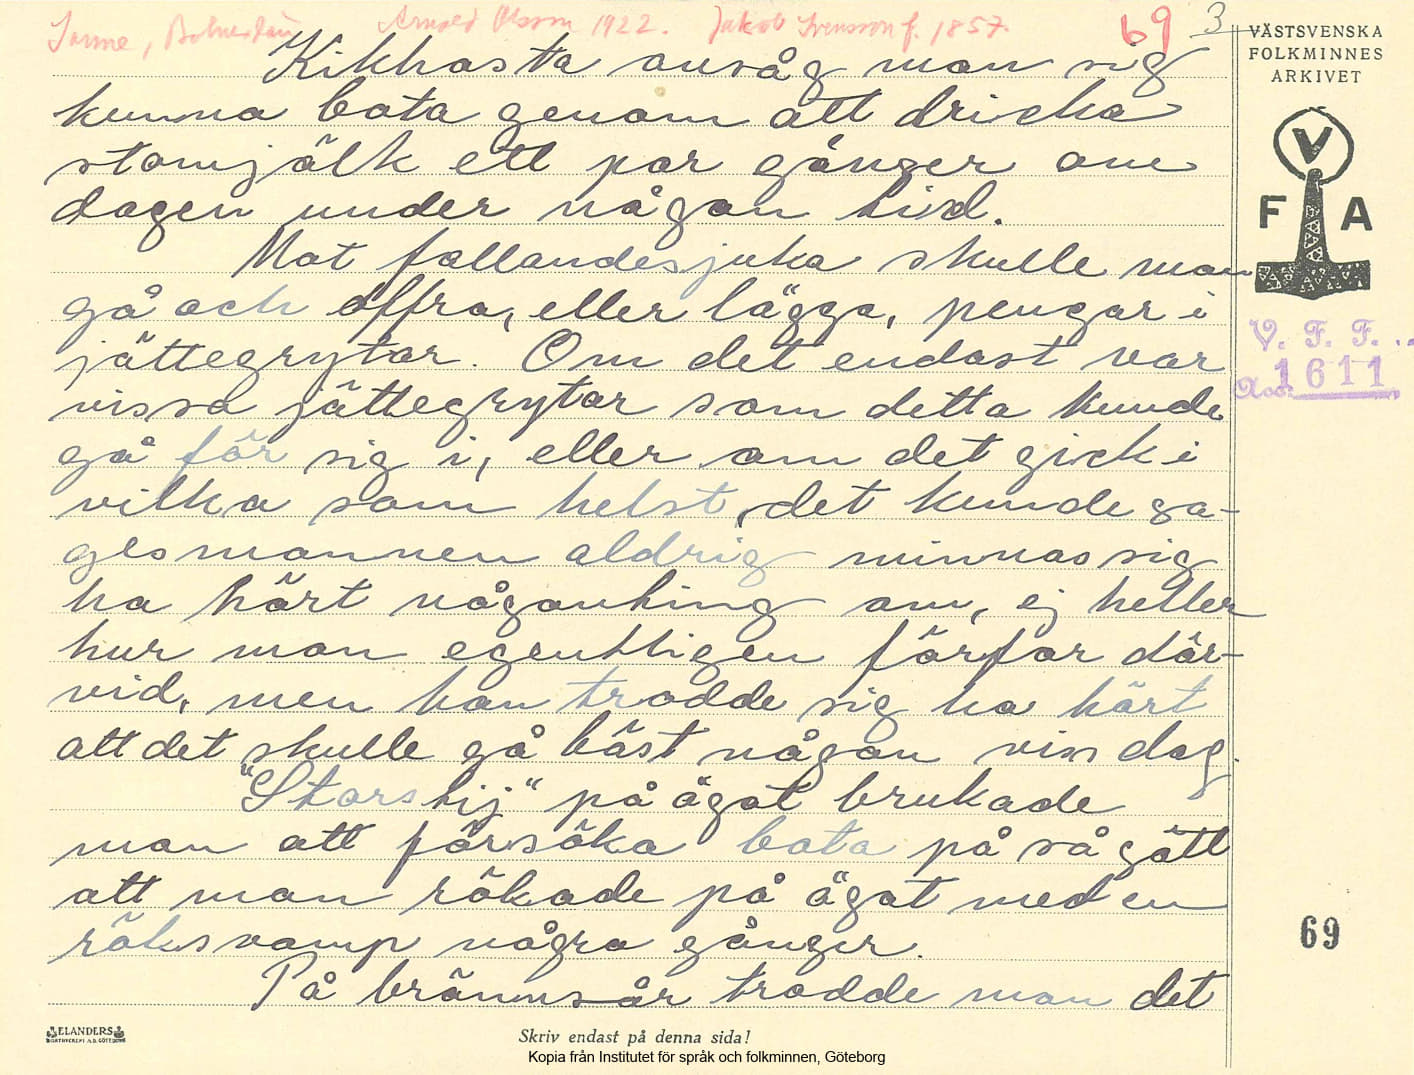 Sanne, Bohuslän Arnold Olsson 1922. Jakob Svensson f. 1857. 69 3
VÄSTSVENSKA
FOLKMINNES
ARKIVET
V
F A
V. F. F.
1611
Kikhosta ansåg man sig
kunna bota genom att dricka
stomjölk ett par gånger om
dagen under någon tid.
Mot fallandesjuka skulle man
gå och offra, eller lägga, pengar i
jättegrytor. Om det endast var
vissa jättegrytor som detta kunde
gå för sig i, eller om det gick i
vilka som helst, det kunde sa-
gesmannen aldrig minnas sig
ha hört någonting om, ej heller
hur man egentligen förfor där-
vid, men han trodde sig ha hört
att det skulle gå bäst någon viss dag.
"Storstij" på ögat brukade
man att försöka bota på så sätt
att man rökade på ögat med en
röksvamp några gånger.
På brännsår trodde man det
69
ELANDERS
Skriv endast på denna sida!
Kopia från Institutet för språk och folkminnen, Göteborg